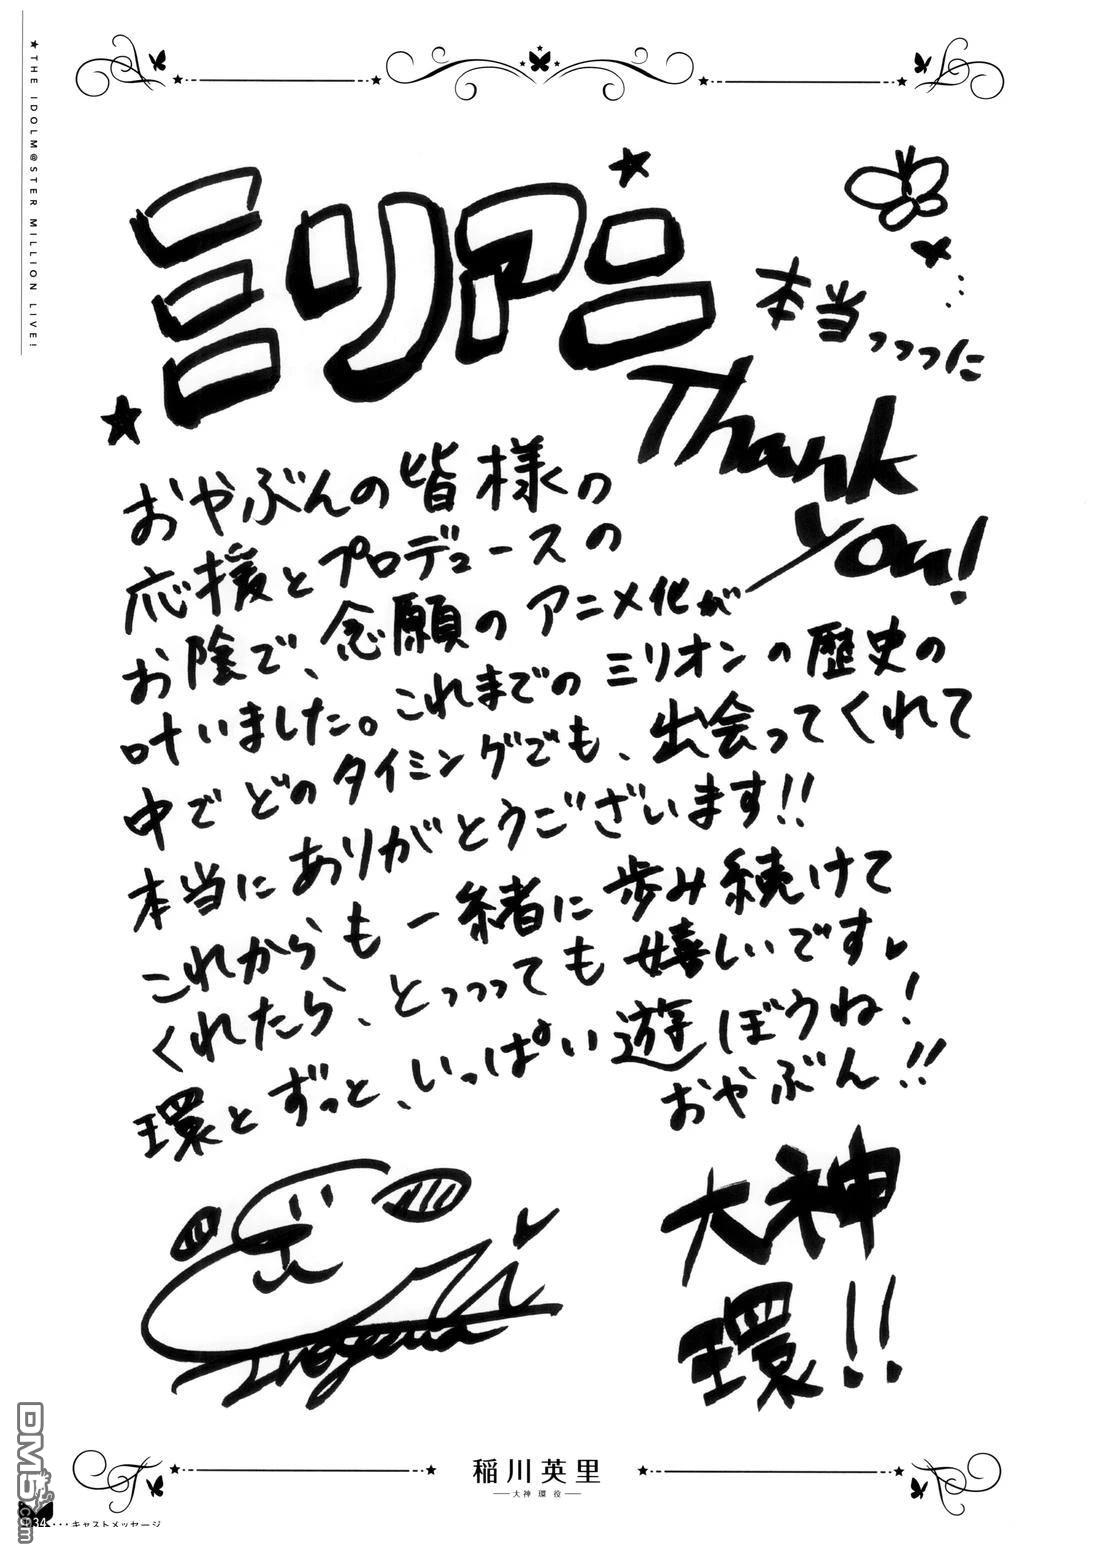 ★THE IDOLM@STER MILLION LIVE!
ミリアニ
本当っっっに
Thank
You!
おやぶんの皆様の
応援とプロデュースの
お陰で、念願のアニメ化が
叶いました。これまでのミリオンの歴史の
中でどのタイミングでも、出会ってくれて
本当にありがとうございます!!
これからも一緒に歩み続けて
くれたら、とっっっても嬉しいです♥
環とずっと、いっぱい遊ぼうね!
おやぶん!!
大神
環!!
Inagawa
稲川英里
大神 環 役
34・・・キャストメッセージ
DM5.com